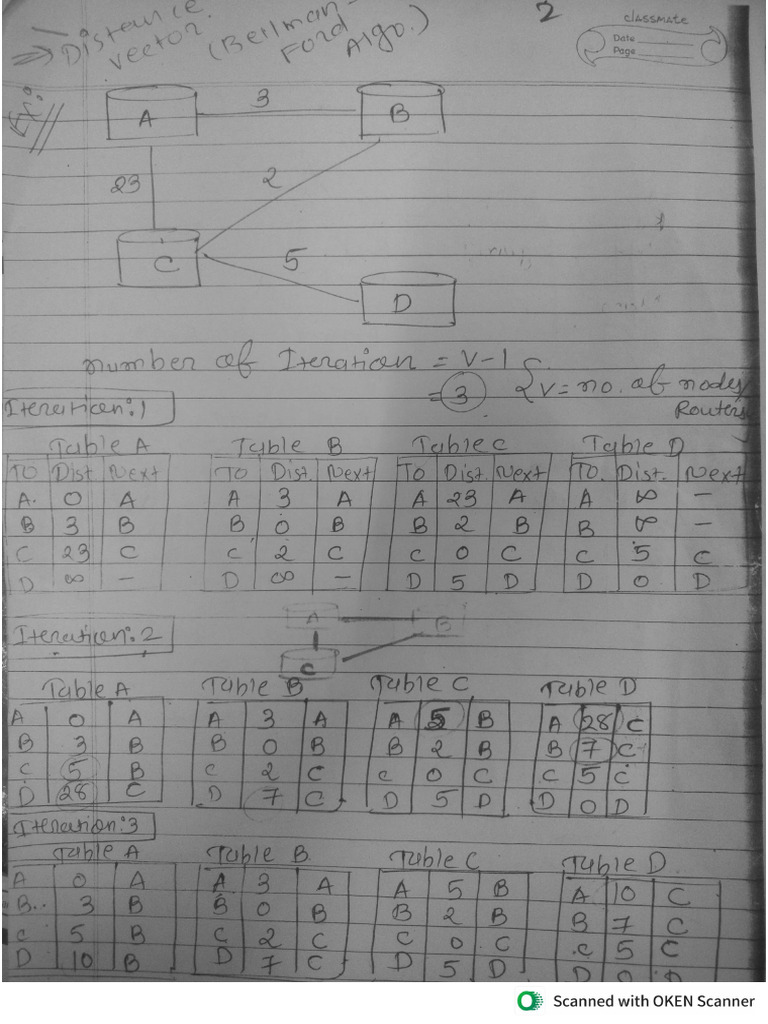 ⇒ Distance vector. (Bellman-Ford Algo.)
2
classmate
Date
Page
Ex:
A 3 B
23 2
C 5
D
number of Iteration = V-1
= 3 { V = no. of nodes/
Routers
Iteration:1
Table A Table B Table C Table D
TO Dist Next TO Dist. Next TO Dist. Next TO. Dist. Next
A. 0 A A 3 A A 23 A A ∞ -
B 3 B B 0 B B 2 B B ∞ -
C 23 C C 2 C C 0 C C 5 C
D ∞ - D ∞ - D 5 D D 0 D
A B
Iteration:2
C
Table A Table B Table C Table D
A 0 A A 3 A A 5 B A 28 C
B 3 B B 0 B B 2 B B 7 C
C 5 B C 2 C C 0 C C 5 C
D 28 C D 7 C D 5 D D 0 D
Iteration:3
Table A Table B. Table C Table D.
A 0 A A 3 A A 5 B A 10 C
B.. 3 B B 0 B B 2 B B 7 C
C 5 B C 2 C C 0 C C 5 C
D 10 B D 7 C D 5 D D 0 D
Scanned with OKEN Scanner